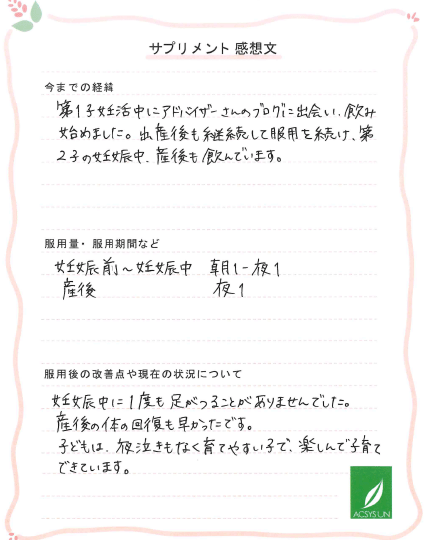 サプリメント 感想文
今までの経緯
第1子妊活中にアドバイザーさんのブログに出会い、飲み
始めました。出産後も継続して服用を続け、第
2子の妊娠中、産後も飲んでいます。
服用量・服用期間など
妊娠前～妊娠中 朝1-夜1
産後 夜1
服用後の改善点や現在の状況について
妊娠中に1度も足がつることがありませんでした。
産後の体の回復も早かったです。
子どもは、夜泣きもなく育てやすい子で、楽しんで子育て
できています。
ACSYS UN